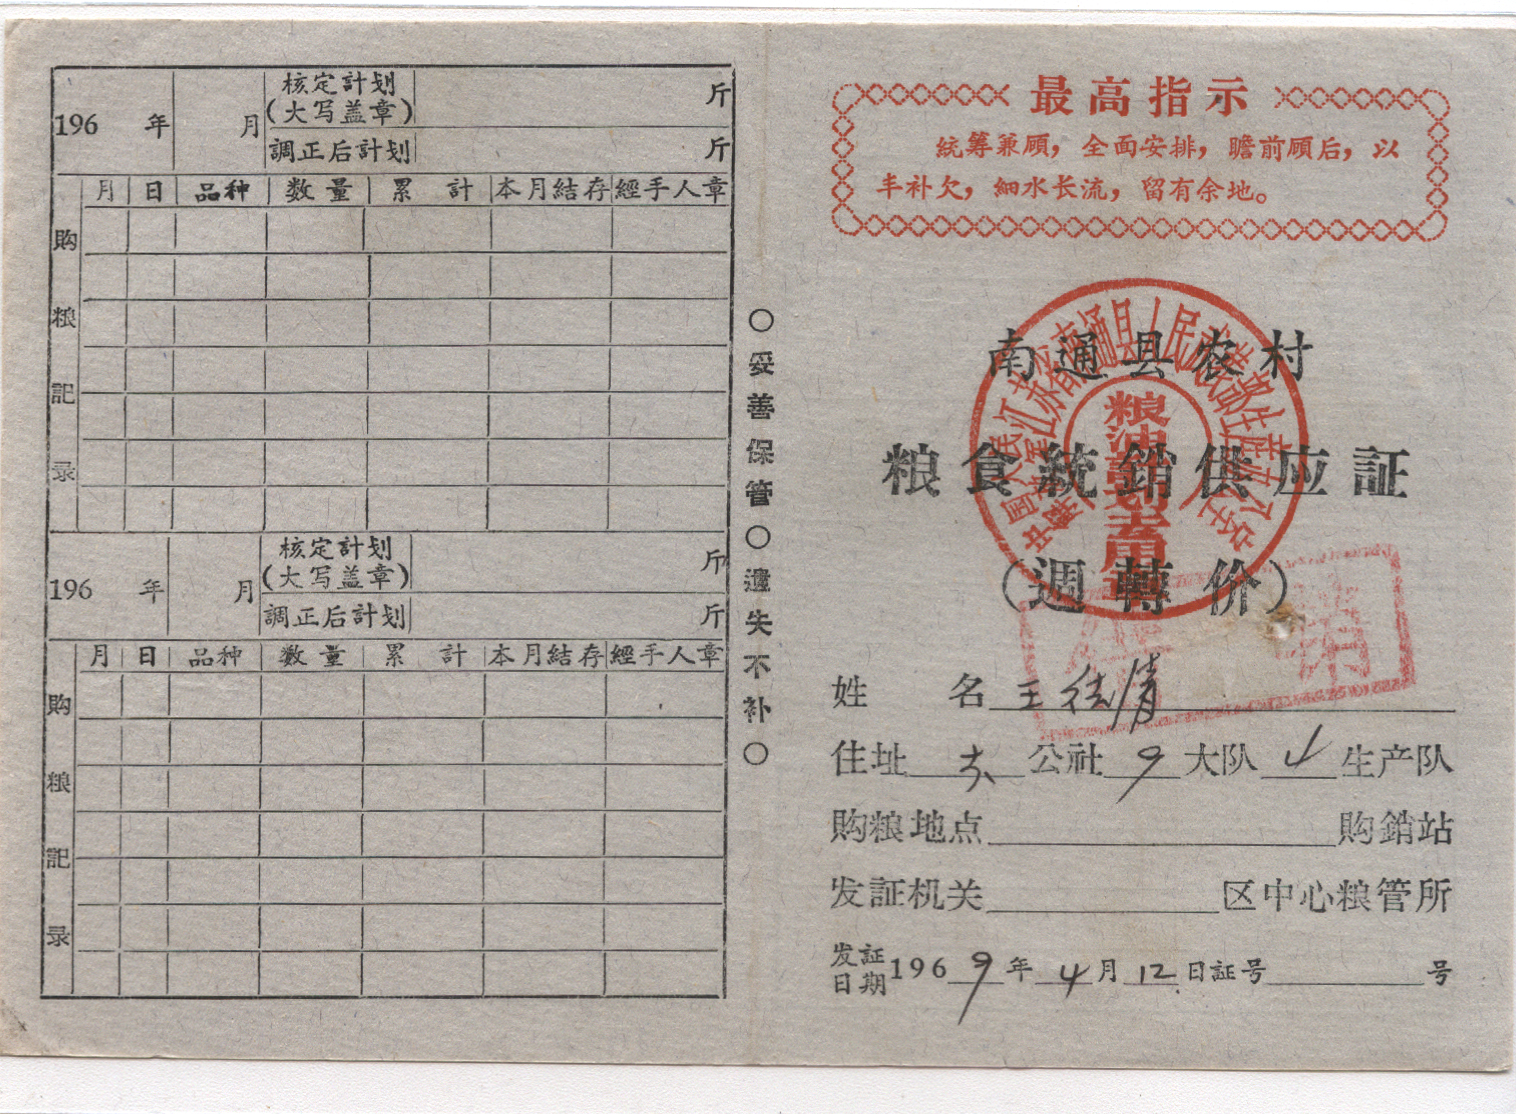 196 年 月 核定計划(大写盖章) 斤
調正后計划 斤
月 日 品种 数量 累計 本月結存 經手人章
购粮記录
196 年 月 核定計划(大写盖章) 斤
調正后計划 斤
月 日 品种 数量 累計 本月結存 經手人章
购粮記录
○妥善保管○遺失不补○
最高指示
統筹兼顾，全面安排，瞻前顾后，以
丰补欠，細水长流，留有余地。
南通县农村
粮食統銷供应証
（週轉价）
粮油計划专用章
姓名 王
住址 公社 9 大队 生产队
购粮地点 购銷站
发証机关 区中心粮管所
发証日期 1969年4月12日 証号 号